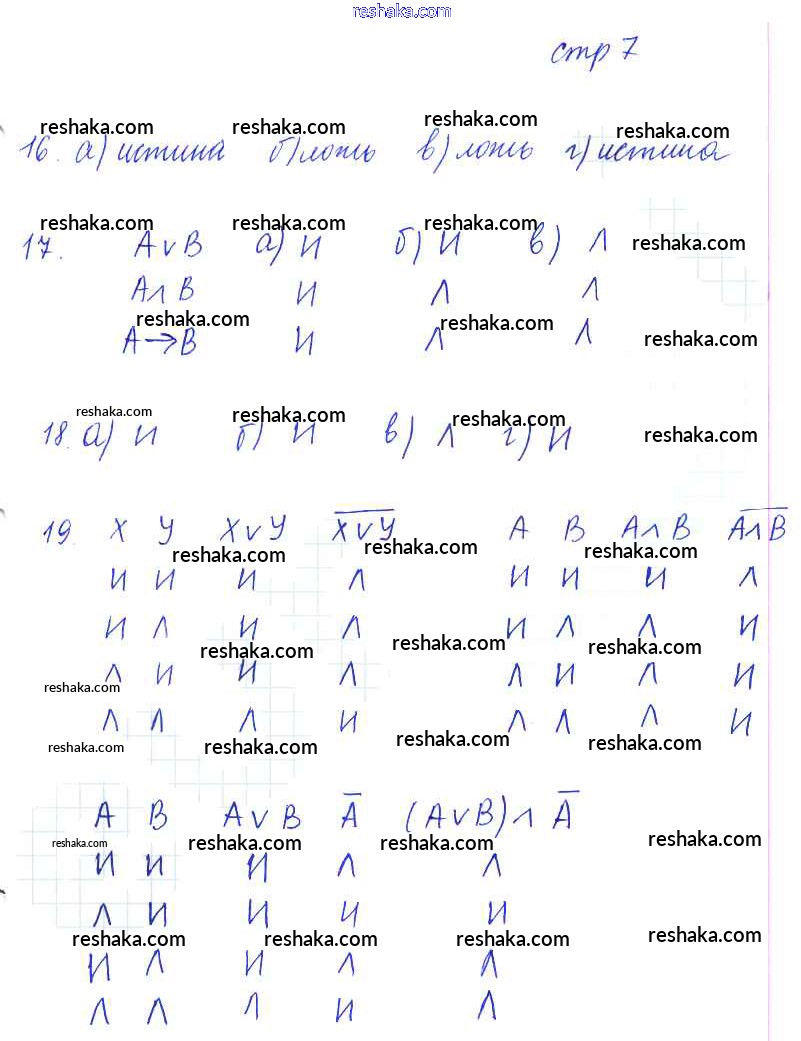 reshaka.com
стр 7
reshaka.com reshaka.com reshaka.com reshaka.com
16. а) истина б) ложь в) ложь г) истина
reshaka.com reshaka.com reshaka.com reshaka.com
17. A∨B а) И б) И в) Л
A∧B И Л Л
reshaka.com reshaka.com reshaka.com
A→B И Л Л
reshaka.com reshaka.com reshaka.com reshaka.com
18. а) И б) И в) Л г) И
19. X Y X∨Y \overline{X∨Y} A B A∧B \overline{A∧B}
reshaka.com reshaka.com reshaka.com
И И И Л И И И Л
И Л И Л И Л Л И
reshaka.com reshaka.com reshaka.com
Л И И Л Л И Л И
reshaka.com
Л Л Л И Л Л Л И
reshaka.com reshaka.com reshaka.com reshaka.com
A B A∨B \overline{A} (A∨B)∧\overline{A}
reshaka.com reshaka.com reshaka.com reshaka.com
И И И Л Л
Л И И И И
reshaka.com reshaka.com reshaka.com reshaka.com
И Л И Л Л
Л Л Л И Л